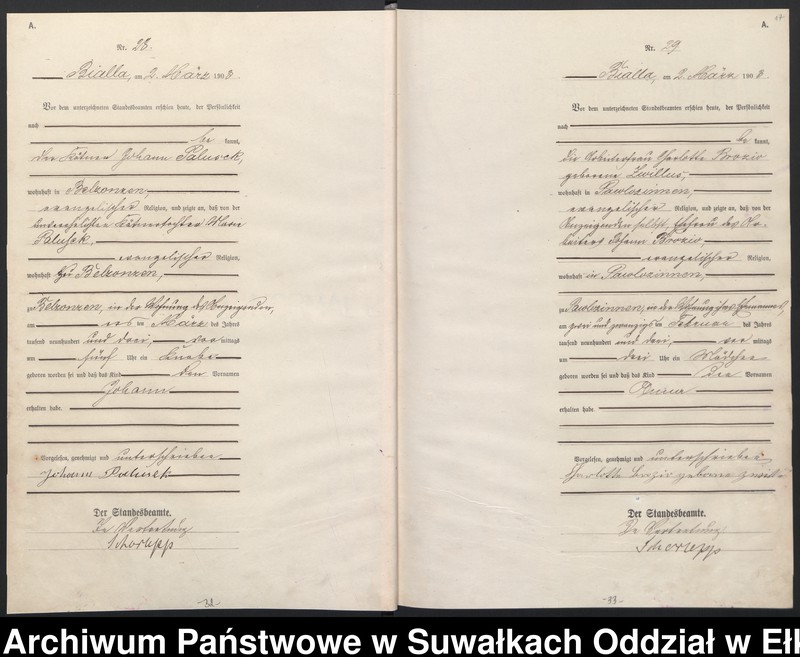 A.
Nr. 28.
Bialla, am 2. März 1903.
Vor dem unterzeichneten Standesbeamten erschien heute, der Persönlichkeit
nach
be kannt,
der Kätner Johann Palusek,
wohnhaft in Belzonzen,
evangelischer Religion, und zeigte an, daß von der
unverehelichten Kätnertochter Marie
Palusek,
evangelischer Religion,
wohnhaft Belzonzen,
zu Belzonzen, in der Wohnung des Anzeigenden,
am ersten März des Jahres
tausend neunhundert und drei, vor mittags
um fünf Uhr ein Knabe
geboren worden sei und daß das Kind den Vornamen
Johann
erhalten habe.
Vorgelesen, genehmigt und unterschrieben
Johann Palusek
Der Standesbeamte.
In Vertretung
Schorlepp
-32-
17
A.
Nr. 29
Bialla, am 2. März 1903.
Vor dem unterzeichneten Standesbeamten erschien heute, der Persönlichkeit
nach
be kannt,
die Arbeiterfrau Charlotte Brozio
geborene Zwillus,
wohnhaft in Pawlozinnen,
evangelischer Religion, und zeigte an, daß von der
Anzeigenden selbst, Ehefrau des Ar-
beiters Johann Brozio,
evangelischer Religion,
wohnhaft in Pawlozinnen,
zu Pawlozinnen, in der Wohnung ihres Ehemannes,
am zwei und zwanzigsten Februar des Jahres
tausend neunhundert und drei, vor mittags
um drei Uhr ein Mädchen
geboren worden sei und daß das Kind die Vornamen
erhalten habe.
Vorgelesen, genehmigt und unterschrieben
Charlotte Brozio geborene
Der Standesbeamte.
In Vertretung
Schorlepp
-33-
Archiwum Państwowe w Suwałkach Oddział w Ełk